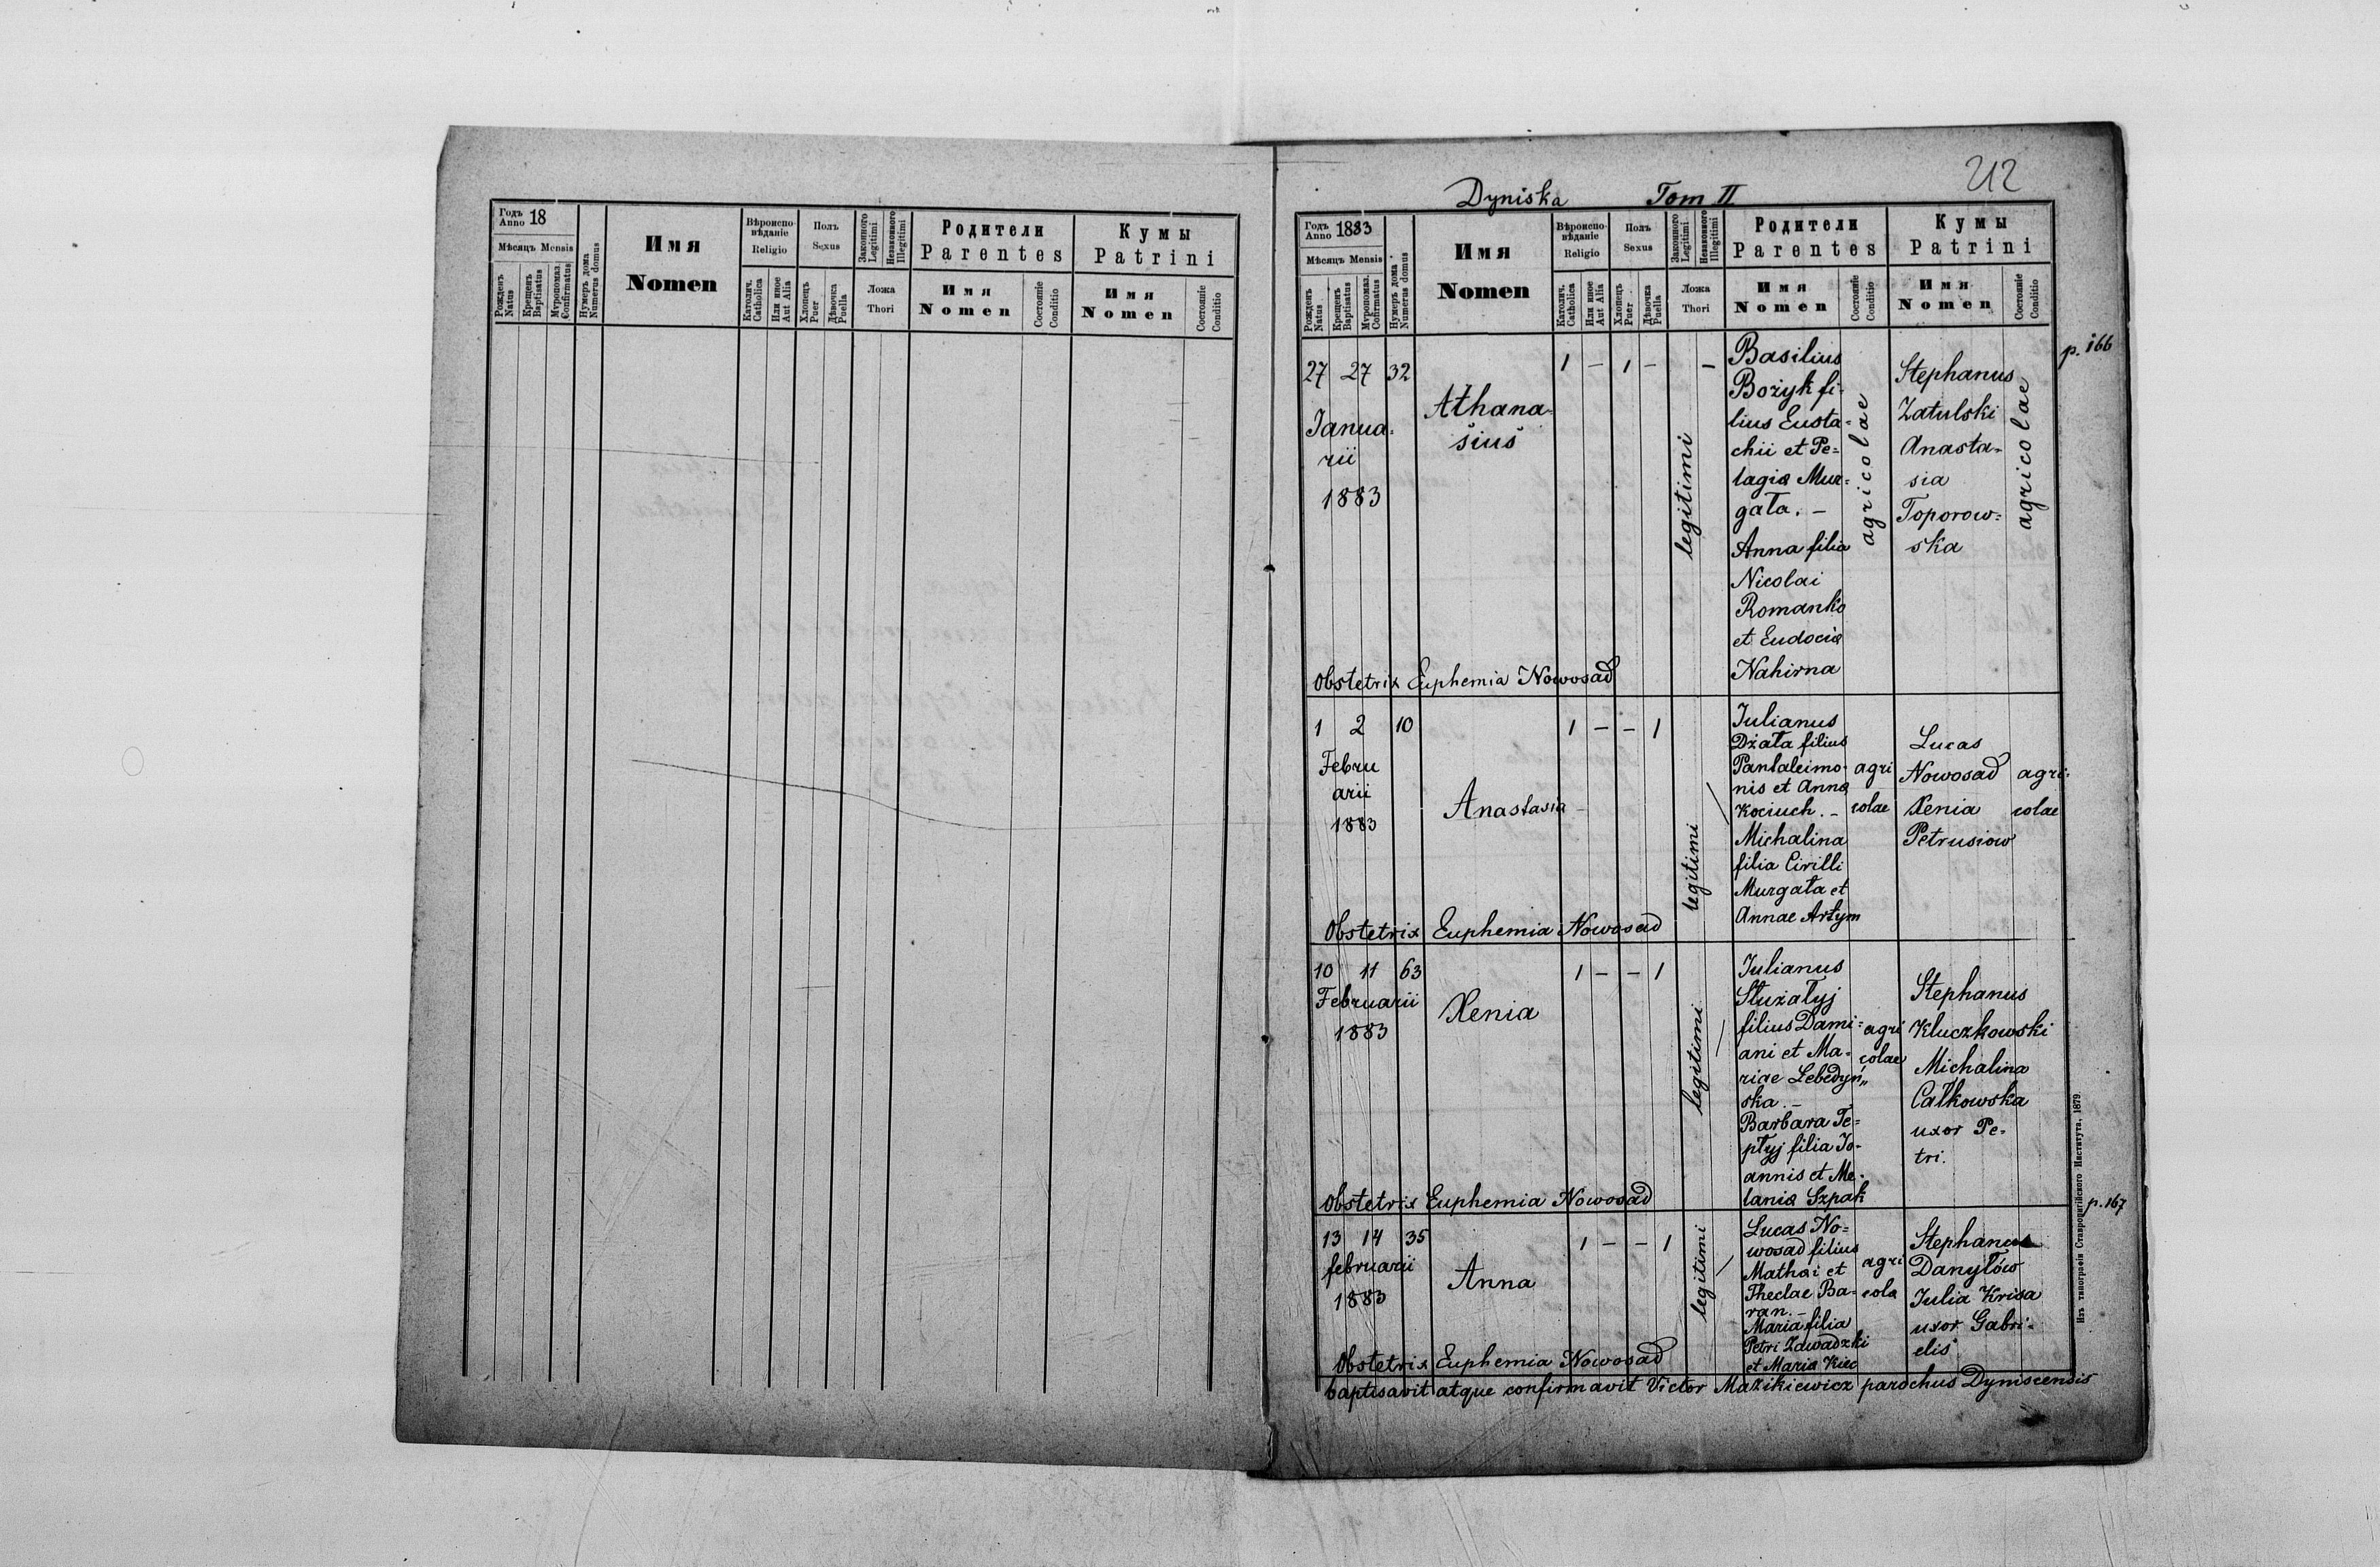 Годъ
Anno 18
Мѣсяцъ Mensis
Рожденъ
Natus
Крещенъ
Baptisatus
Мѵропомаз.
Confirmatus
Нумеръ дома
Numerus domus
Имя
Nomen
Вѣроиспо-
вѣданіе
Religio
Католич.
Catholica
Или иное
Aut Alia
Полъ
Sexus
Хлопецъ
Puer
Дѣвочка
Puella
Законного
Legitimi
Незаконного
Illegitimi
Ложа
Thori
Родители
Parentes
Имя
Nomen
Состояніе
Conditio
Кумы
Patrini
Имя
Nomen
Состояніе
Conditio
212
Dyniska Tom II
Годъ
Anno 1883
Мѣсяцъ Mensis
Рожденъ
Natus
Крещенъ
Baptisatus
Мѵропомаз.
Cofirmatus
Нумеръ дома
Numerus domus
Имя
Nomen
Вѣроиспо-
вѣданіе
Religio
Католич.
Catholica
Или иное
Aut Alia
Полъ
Sexus
Хлопецъ
Puer
Дѣвочка
Puella
Законного
Legitimi
Незаконного
Illegitimi
Ложа
Thori
Родители
Parentes
Имя
Nomen
Состояніе
Conditio
Кумы
Patrini
Имя
Nomen
Состояніе
Conditio
p. 166
27 27 32
Janua-
rii
1883
Athana-
sius
1 – 1 –
legitimi –
Basilius
Bożyk fi-
lius Eusta-
chii et Pe-
lagiæ Mur-
gała. –
Anna filia
Nicolai
Romanko
et Eudociæ
Nahirna
agricolae
Stephanus
Zatulski
Anasta-
sia
Toporow-
ska
agricolae
Obstetrix Euphemia Nowosad
1 2 10
Febru
arii
1883
Anastasia
1 – – 1
legitimi
Julianus
Dżała filius
Pantaleimo-
nis et Annæ
Kociuch. –
Michalina
filia Cirilli
Murgała et
Annae Artym
agri
colae
Lucas
Nowosad
Xenia
Petrusiow
agri-
colae
Obstetrix Euphemia Nowosad
10 11 63
Februarii
1883
Xenia
1 – – 1
legitimi
Julianus
Służałyj
filius Dami-
ani et Ma-
riae Lebedyń-
ska. –
Barbara Te-
płyj filia Jo-
annis et Me-
laniæ Szpak
agri
colae
Stephanus
Kluczkowski
Michalina
Całkowska
uxor Pe-
tri.
Obstetrix Euphemia Nowosad
p. 167
13 14 35
februarii
1883
Anna
1 – – 1
legitimi
Lucas No-
wosad filius
Mathæi et
Theclae Ba-
ran. –
Maria filia
Petri Zawadzki
et Mariæ Kiec
agri
colæ
Stephanus
Danyłów
Julia Krisa
uxor Gabri-
elis
Obstetrix Euphemia Nowosad
baptisavit atque confirmavit Victor Mazikiewicz parochus Dyniscensis
Изъ типографіи Ставропигійского Института, 1879.